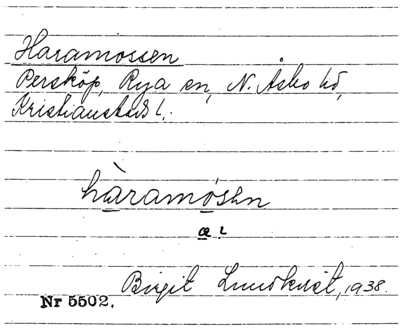 Haramossen
Persköp, Rya sn, N. Åsbo hd,
Kristianstads l.
hàramósen
æ?
Birgit Lundkvist, 1938.
Nr 5502.